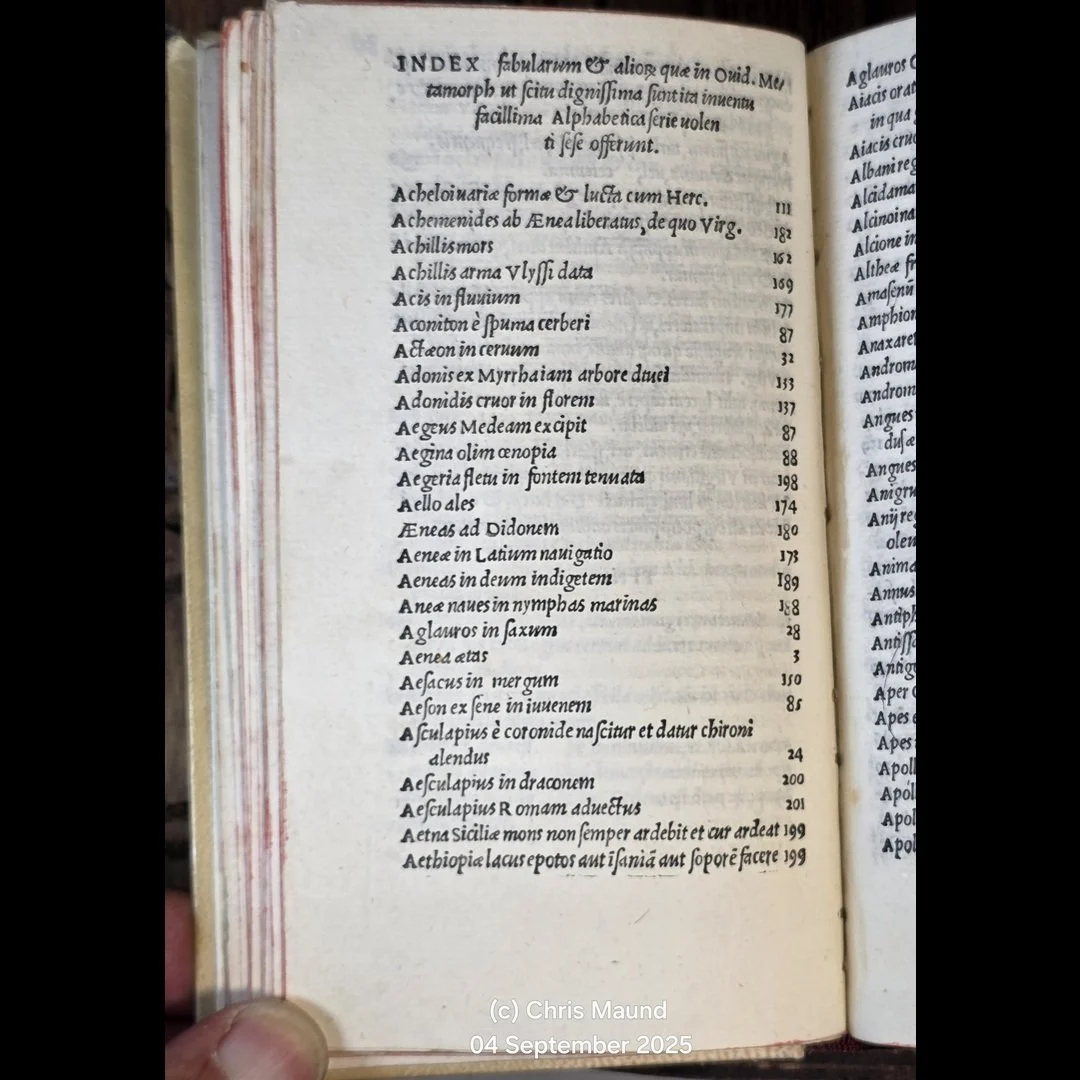 INDEX fabularum & alioꝝ quæ in Ouid. Me/
tamorph ut ſcitu digniſſima ſunt ita inuentu
facillima Alphabetica ſerie uolen
ti ſeſe offerunt.
Acheloi uariæ formæ & lucta cum Herc. 111
Achemenides ab Ænea liberatus, de quo Virg. 182
Achillis mors 162
Achillis arma Vlyſſi data 169
Acis in fluuium 177
Aconiton è ſpuma cerberi 87
Actæon in ceruum 32
Adonis ex Myrrha iam arbore 133
Adonidis cruor in florem 137
Aegeus Medeam excipit 87
Aegina olim œnopia 88
Aegeria fletu in fontem tenuata 198
Aello ales 174
Æneas ad Didonem 180
Aeneæ in Latium nauigatio 173
Aeneas in deum indigetem 189
Aneæ naues in nymphas marinas 188
Aglauros in ſaxum 28
Aenea ætas 3
Aeſacus in mergum 150
Aeſon ex ſene in iuuenem 85
Aſculapius è coronide naſcitur et datur chironi
alendus 24
Aeſculapius in draconem 200
Aeſculapius Romam aduectus 201
Aetna Siciliæ mons non ſemper ardebit et cur ardeat 199
Aethiopiæ lacus epotos aut īſaniā aut ſoporē facere 199
Aglauros
Aiacis
in qua
Aiacis
Albani
Alcinoi
Alcione
Altheæ
Amaſenū
Angues
Angues
Anima
Annus
Aper
Apes
Apes
(c) Chris Maund
04 September 2025